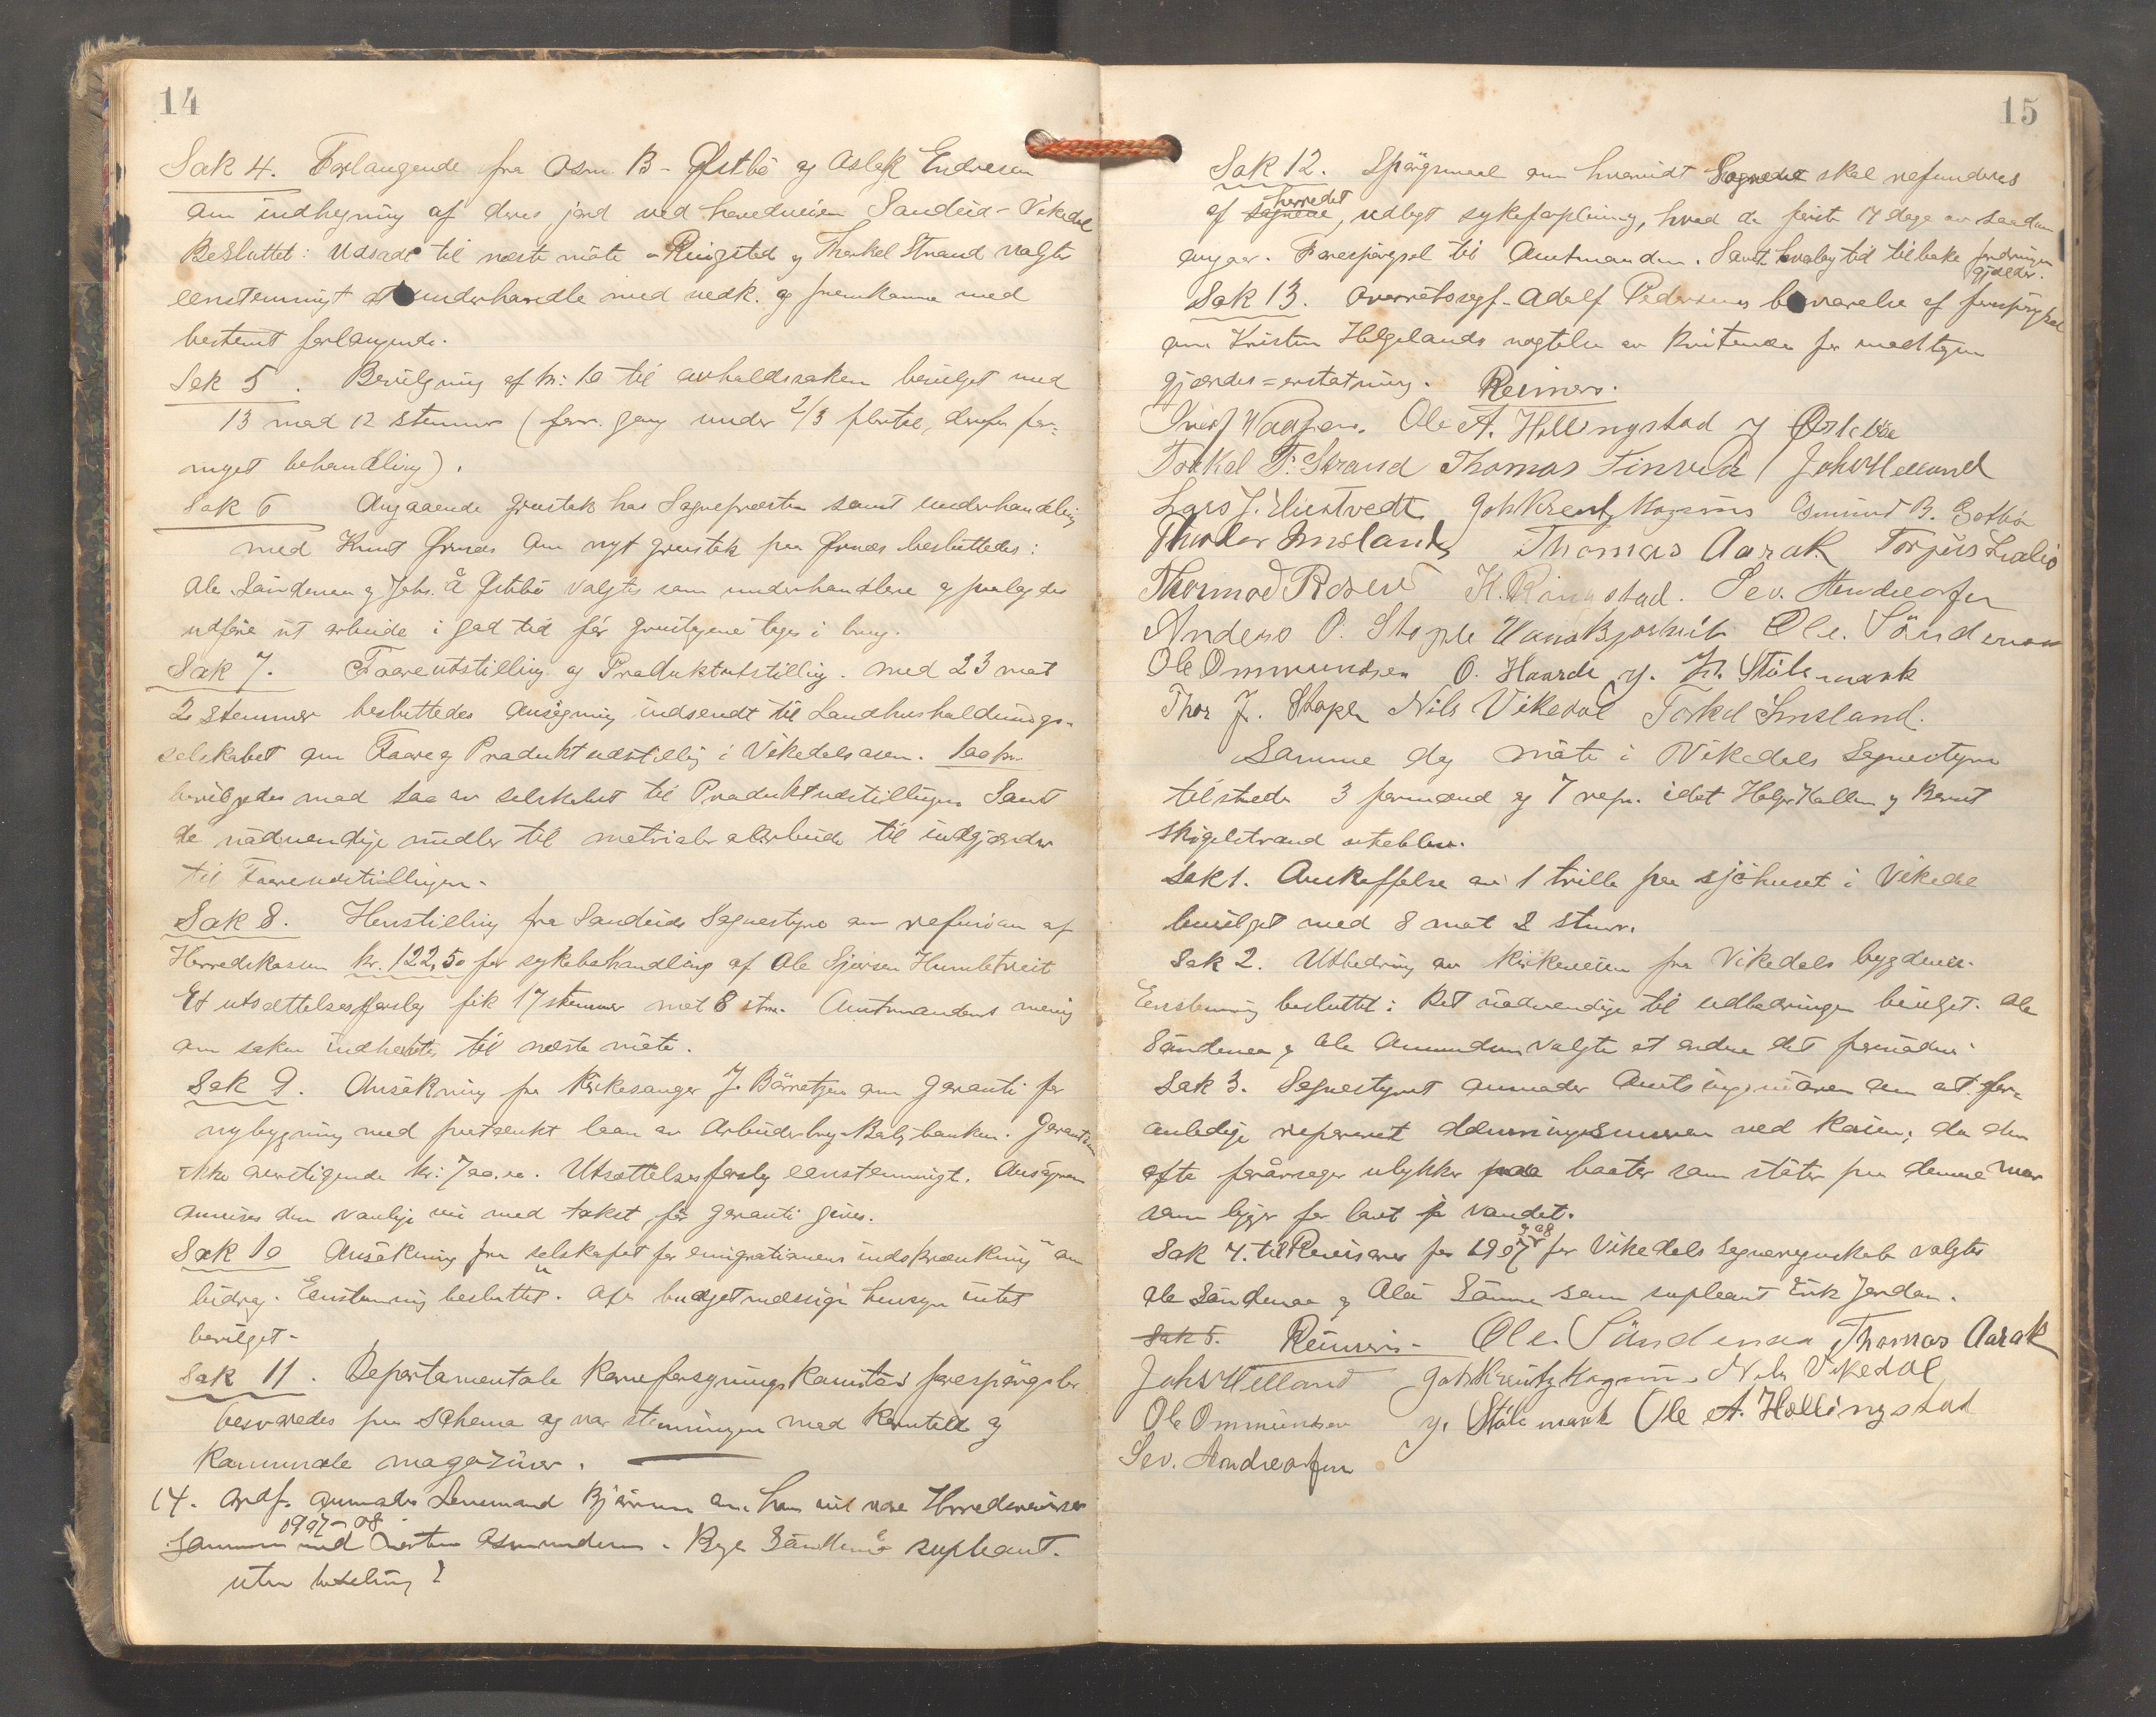 14
Sak 4. Forlangende fra Osm. B. Østbö og Aslak Endresen
om indhegning af deres jord ved hovedveien Sandeid - Vikedal
Besluttet: Udsadt til næste möte - Ringstad og Thorkel Strand valgte
eenstemmigt at underhandle med vedk. og fremkomme med
bestemt forlangende.
Sak 5. Bevilgning af kr: 10 til avholdssaken bevilget med
13 mod 12 stemmer (forr. gang under 2/3 flertal, derfor for-
nyet behandling).
Sak 6 Angaaende grustak hos Sognepræsten samt underhandling
med Knut Ørnes om nyt grustak paa Ørnes besluttedes:
Ole Søndenaa og Johs. Å Østbö valgtes som underhandlere og paalagdes
udføre sit arbeide i god tid för grustagene toges i brug.
Sak 7. Faareutstilling og Produktutstilling. Med 23 mot
2 stemmer besluttedes ansögning indsendt til Landhusholdnings-
selskabet om Faare og Produktudstilling i Vikedalsosen. 100 kr.
bevilgedes mod 100 av selskabet til Produktudstillingen Samt
de nödvendige midler til materialer arbeide til indgjærder
til Faareudstillingen.
Sak 8. Henstilling fra Sandeids Sognestyre om refusion af
Herredskassen kr. 122,50 for sykebehandling af Ole Sjursen Humletveit
Et utsættelsesforslag fik 17 stemmer mot 8 stm. Amtmandens mening
om saken indhentes til næste möte.
Sak 9. Ansökning fra Kirkesanger J. Børretzen om garanti for
nybygning med paatænkt laan av Arbeiderbrug- & Boligbanken. Garantien
ikke overstigende kr: 700.00. Utsættelsesforslag eenstemmigt. Ansögeren
anvises den vanlige vei med takst för garanti gives.
Sak 10 Ansökning fra "selskapet for emigrationens indskrænkning" om
bidrag. Eenstemmig besluttet: Af budgetmæssige hensyn intet
bevilget.
Sak 11. Departementale Kornforsyningskomites forespörgsler
besvaredes paa schema og var stemningen mod Korntold og
Kommunale magaziner.
14. Ordf. anmoder Lensmand Bjørnsen om han vil være Herredsrevisor
1907-08
sammen med Torsten Osmundsen. Børge Söndenå supleant.
uten betaling?
15
Sak 12. Spörgsmaal om hvorvidt Sognet skal refunderes
herredet
af sognene, udlagt sykeforpleining, hvad de første 14 dage av saadan
angaar. Forespörgsel til Amtmanden. Samt hvalag tid tilbake fordringen
gjælder.
Sak 13. Overretssagf. Adolf Pedersens besvarelse af forespörgsel
om Kristen Helgelands nægtelse av kvitering for mottagen
gjærdes=erstatning. Reimers.
Sven J Vaagen. Ole A. Hollingstad J Østebö
Torkel T. Strand Thomas Finsvik Johs Helland
Lars J. Miestvedt Joh Kreutz Magnus Osmund B. Østbö
Theodor Imsland Thomas Aarak Torjus Lialio
Thormod Rosew K. Ringstad. Sev. Andreasen
Anders O. Stople Hans Bjørkevik Ole Söndenaa
Ole Ommundsen O. Haarde J. H. Stölemark
Thor J. Stople Nils Vikedal Torkel Imsland.
Samme dag möte i Vikedals Sognestyre
tilstede 3 formænd og 7 repr. idet Helge Kallem og Bernt
Skigelstrand uteblev.
Sak 1. Anskaffelse av 1 trille paa sjöhuset i Vikedal
bevilget med 8 mot 2 stem.
Sak 2. Utbedring av kirkeveien fra Vikedals bygdevei.
Eenstemmig besluttet: Det nödvendige til udbedringen bevilget. Ole
Söndenaa og Ole Ommundsen valgtes at ordne det fornödne.
Sak 3. Sognestyret anmoder Amtsingeniören om at for-
anledige repareret dæmningsmuren ved Kaien, da den
ofte forårsager ulykker paa baater som stöter paa denne mur
som ligger for lavt i vandet.
og 08
Sak 4. til Revisorer for 1907 for Vikedals Sogneregnskab valgtes
Ole Söndenaa og Ola Sönna som supleant Erik Jordan.
Sak 5. Reimers - Ole Söndenaa Thomas Aarak
Johs Helland Joh Kreutz Magnus Nils Vikedal
Ole Ommundsen J. Stölemark Ole A. Hollingstad
Sev. Andreasen